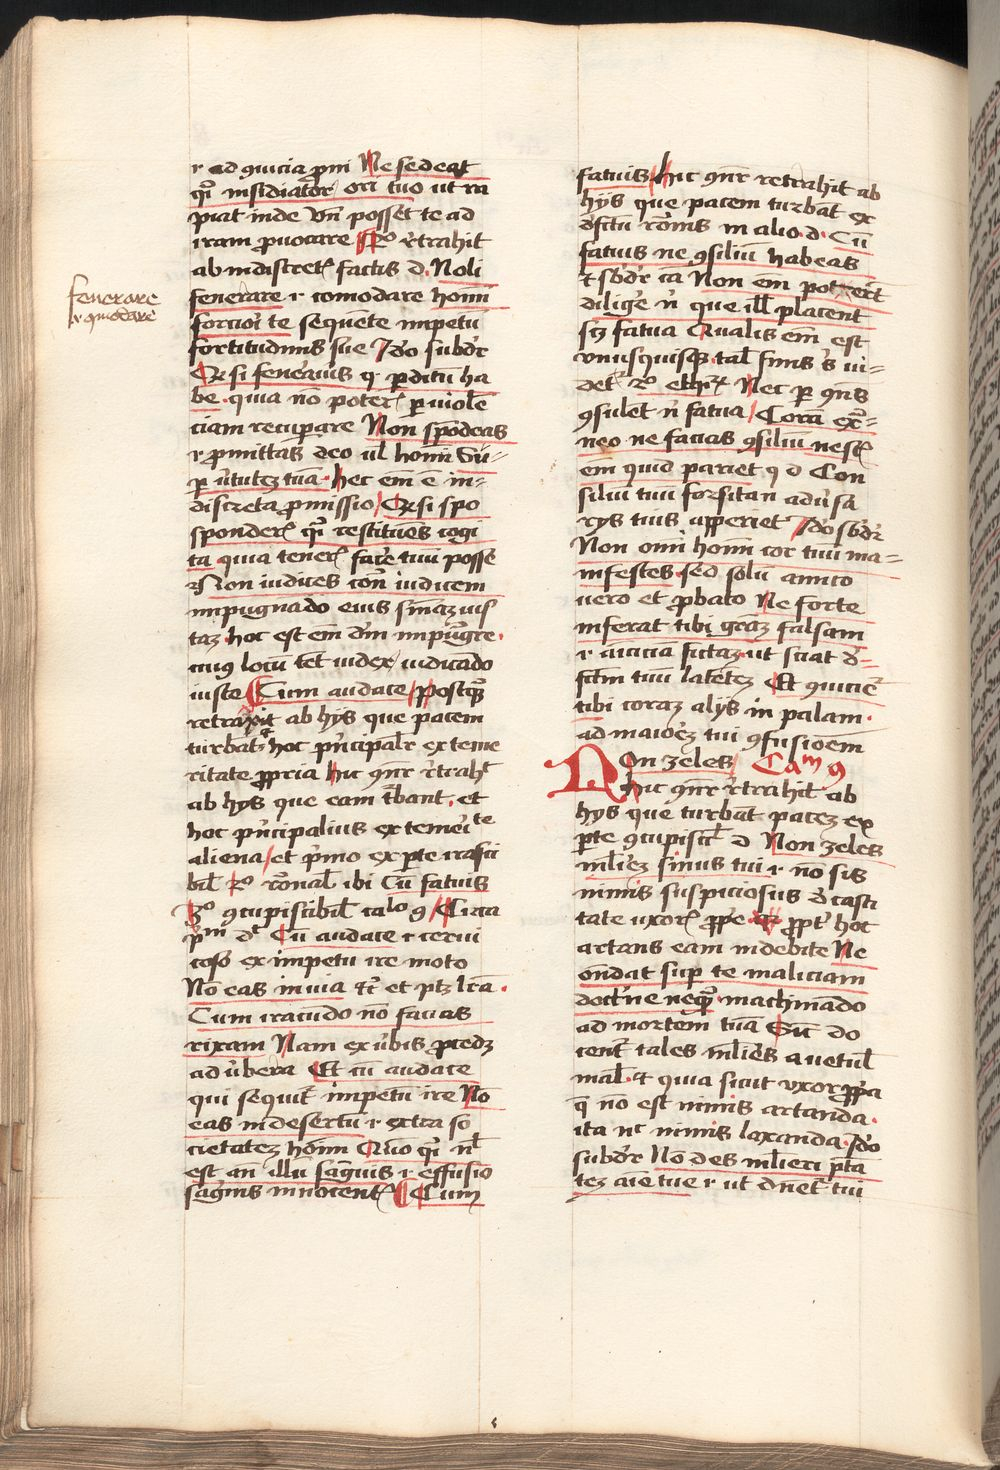 fenerare
r ꝯmodare
r ad ꝯuicia ꝓni Ne sedeat
qͥ insidiator ori tuo ut ra
piat inde vn̄ posset te ad
iram ꝓuocare Sꝫͦ r̄trahit
ab indiscret᷒ factis d. Noli
fenerare r comodare homi
forciori te sequēte impetū
fortitudinis sue Ido subdr̄
Qr si feneraūis qͥ ꝑditū ha
be. quia nō poteris ꝑ uiolē
ciam recuperare Non spōdeas
r ꝓmittas deo ul homī Su-
ꝑ ūtutez tuā. hec em̄ ē in-
discreta ꝓmissio Qr si spo
sponderis qͥ restitues cogi
ta quia teneris facere tuū posse
Non iudices con̄ iudicem
impugnādo eius sn̄iaz uis
taz hoc est em̄ dm̄ impugre.
cuiꝯ locū tꝫ iudex iudicādo
iuste Cum audace Postqꝫ
retraxit ab hijs que pacem
turbāt hoc pͥncipalr̄ ex teme
ritate ꝓpria hic ꝯnr̄ r̄traht
ab hijs que eam t̄bant. et
hoc pͥncipalius ex temeiͭᵉ
aliena et pͥmo ex ꝑte irasci
bil Sꝫͦ rōnal ibi Cū fatuis
3ͦ ꝯcupiscibil caͦ 9 Circa
pͥm dt Cū audace r cerui
coso ex impetu ire moto
Nō eas in uia &c̄ et ptꝫ lr̄a.
Cum iracūdo nō facias
rixam Nam ex ūbis ꝓcedꝫ
ad ūbera Et cū audace
qui sequit᷒ impetū ire Nō
eas in desertū r extra so
cietatez homī Qm̄o qͥ nl̄
est an̄ illū sanguis r effusio
sagnis innocent᷒ Cum
fatuis hic ꝯnr̄ retrahit ab
hijs que pacem turbāt ex
dfctu rōnis in alio. d. Cū
fatuis ne ꝯsiliū habeas
& sbdr̄ cā Non em̄ poterit
diligē n̄ que ill placent
sꝫ fatua Qualis em̄ est
vnusquisqꝫ tal finis s̄ ui-
det᷒ Sꝫͦ ethic᷒ Nec ꝑ ꝯn̄s
ꝯsulet n̄ fatua Corā ex-
neo ne facias ꝯsiliū nesc᷒
em̄ quid pariet qͥ d Con
siliū tuū forsitan adūsa
rijs tuis apperiet Ido sbdr̄
Non omi homī cor tuū ma-
nifestes sed solū amico
uero et ꝓbato Ne forte
inferat tibi gr̄az falsam
r amicicia fictaz ut sciat d-
fctm tuū latētez Et ꝯuicie᷒
tibi coraz alijs in palam.
ad maiorez tui ꝯfusionem
Non zeles Caᵐ 9
hic ꝯnr̄ r̄trahit ab
hijs que turbāt pacez ex
ꝑte ꝯcupiscil d Non zeles
mlierez sinus tui r nō sis
nimis suspiciosus d casti
tate uxoris ꝓpe ꝓpt᷒ hoc
artans eam indebite Ne
ondat suꝑ te maliciam
doct͛ne nequā machinādo
ad mortem tuā Sic do
cent tales mlieres a uetul
mal. & quia sicut vxor ꝓpa
q̄ nō est nimis artanda.
ita nc̄ nimis laxanda. Ido
subdr̄ Nō des mlieri pt̄a
tez aīe tue r ut dnet᷒ tui